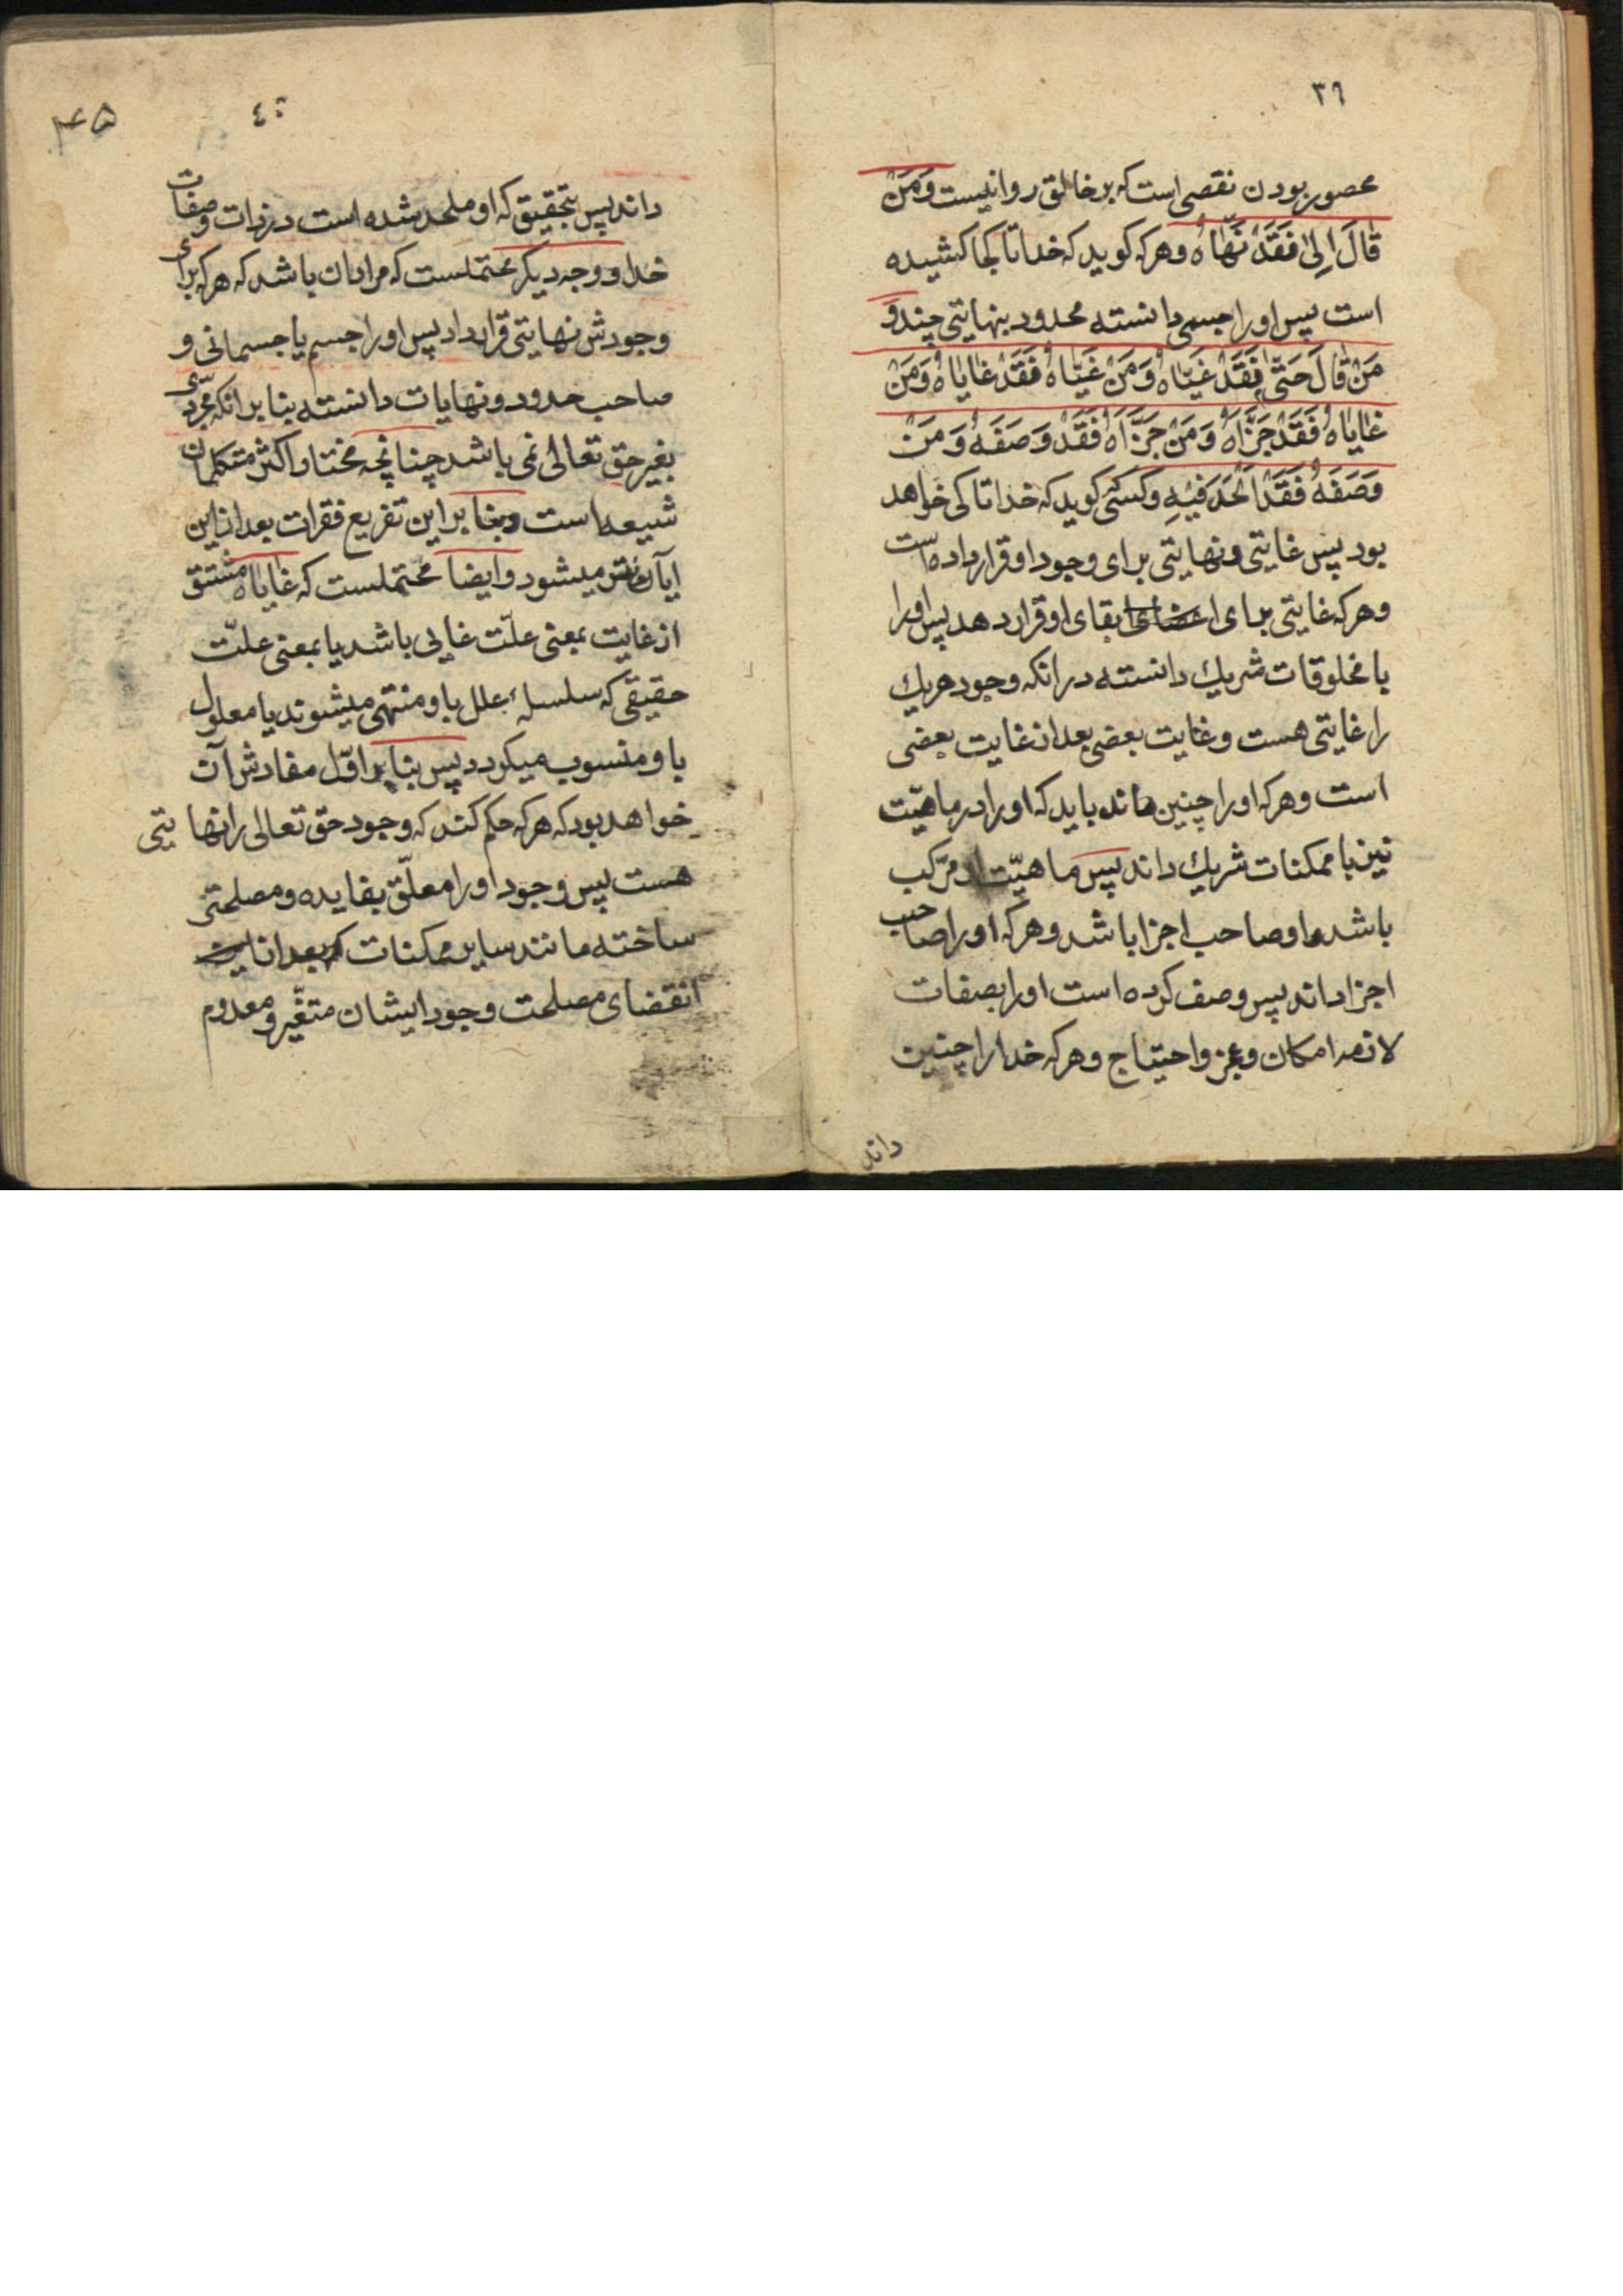 ٣٩
محصور بودن نقصی است که بر خالق روا نیست وَمَنْ
قَالَ اِلیٰ فَقَدْ نَهَّاهُ وهرکه کوید که خدا تا کجا کشیده
است پس او را جسمی دانسته محدود بنهایتی چند وَ
مَنْ قَالَ حَتّیٰ فَقَدْ غَیَّاهُ وَمَنْ غَیَّاهُ فَقَدْ غایاهُ وَمَنْ
غایاهُ فَقَدْ جَزَّاهُ وَمَنْ جَزَّاهُ فَقَدْ وَصَفَهُ وَمَنْ
وَصَفَهُ فَقَدْ اَلْحَدَ فیْهِ وکسی کوید که خدا تا کی خواهد
بود پس غایتی ونهایتی برای وجود او قرار داده است
وهرکه غایتی برای بقای او قرار دهد پس او را
با مخلوقات شریك دانسته در انکه وجود هریك
را غایتی هست وغایت بعضی بعد از غایت بعضی
است وهرکه او را چنین داند باید که او را در ماهیّت
نیز با ممکنات شریك داند پس ماهیّت او مرّکب
باشد واو صاحب اجزا باشد وهرکه او را صاحب
اجزا داند پس وصف کرده است او را بصفات
لازمه امکان وعجز واحتیاج وهرکه خدا را چنین
داند
٤٠
٤٥
داند پس بتحقیق که او ملحد شده است در ذات وصفات
خدا و وجه دیکر محتملست که مراد ان باشد که هرکه برای
وجودش نهایتی قرار داد پس او را جسم یا جسمانی و
صاحب حدود ونهایات دانسته بنا بر انکه مجرّدی
بغیر حق تعالی نمی باشد چنانچه مختار اکثر متکلمان
شیعه است وبنا بر این تفریع فقرات بعد از این
میشود وایضا محتملست که غایاه مشتق
از غایت بمعنی علّت غایی باشد یا بمعنی علّت
حقیقی که سلسلهٔ علل باو منتهی میشوند یا معلول
باو منسوب میکردد پس بنا بر اوّل مفادش آن
خواهد بود که هرکه حکم کند که وجود حق تعالی را نهایتی
هست پس وجود او را معلّق بفایده ومصلحتی
ساخته مانند سایر ممکنات که بعد از
انقضای مصلحت وجود ایشان متغّیر ومعدوم